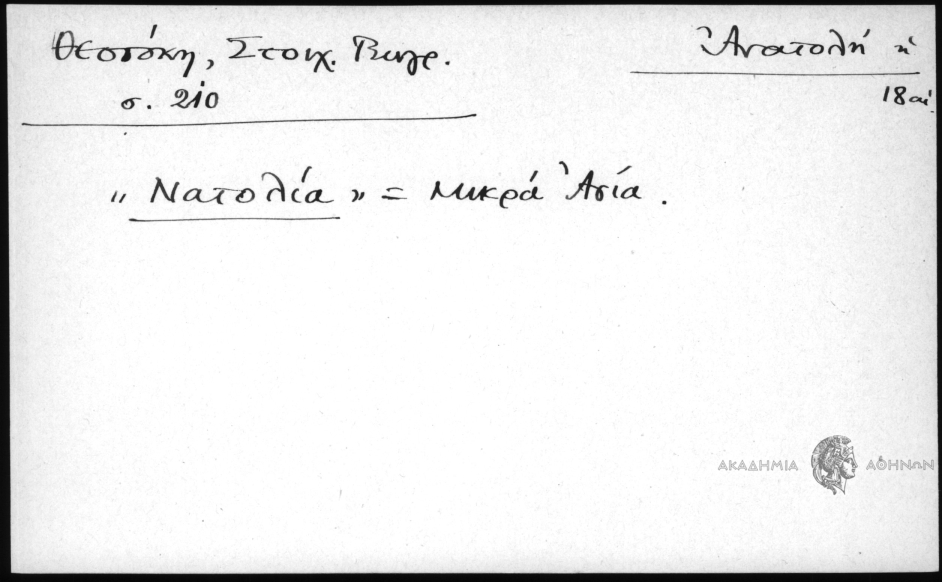 Θεοτόκη, Στοιχ. Γεωγρ.
σ. 210
Ἀνατολή ἡ
18 αἰ.
„ Νατολία " = Μικρά Ἀσία.
ΑΚΑΔΗΜΙΑ ΑΘΗΝΩΝ